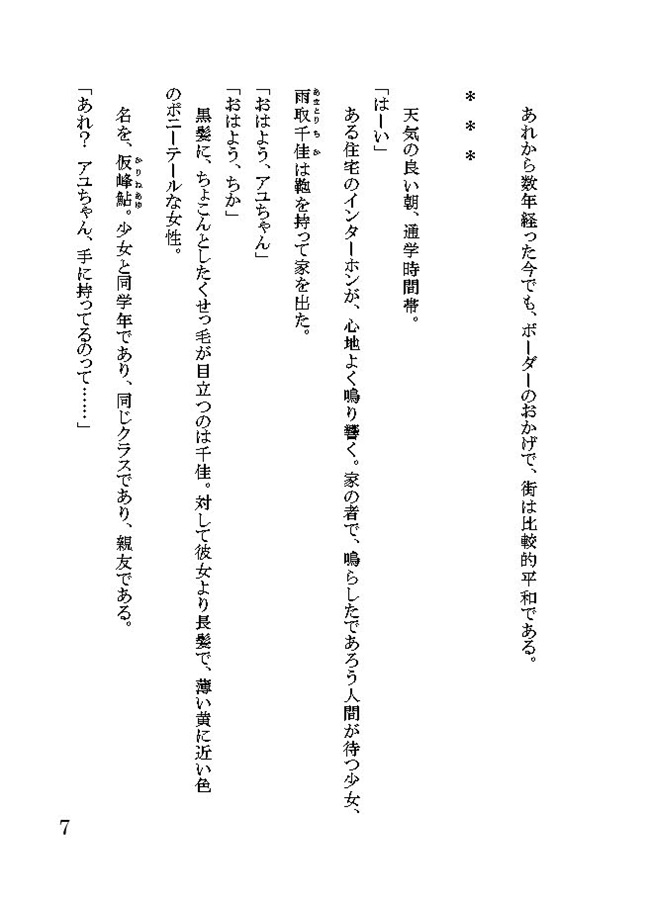 あれから数年経った今でも、ボーダーのおかげで、街は比較的平和である。
＊＊＊
天気の良い朝、通学時間帯。
「はーい」
ある住宅のインターホンが、心地よく鳴り響く。家の者で、鳴らしたであろう人間が待つ少女、
あまとりちか
雨取千佳は鞄を持って家を出た。
「おはよう、アユちゃん」
「おはよう、ちか」
黒髪に、ちょこんとしたくせっ毛が目立つのは千佳。対して彼女より長髪で、薄い黄に近い色
のポニーテールな女性。
かりねあゆ
名を、仮峰鮎。少女と同学年であり、同じクラスであり、親友である。
「あれ？　アユちゃん、手に持ってるのって……」
7